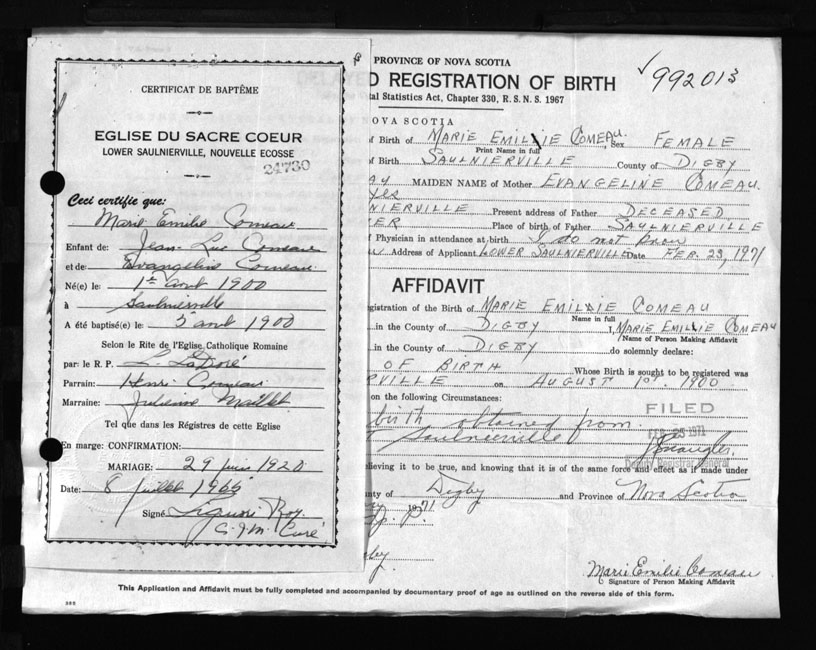 CERTIFICAT DE BAPTÊME
EGLISE DU SACRE COEUR
LOWER SAULNIERVILLE, NOUVELLE ECOSSE
24730
Ceci certifie que:
Marie Emilie Comeau
Enfant de: Jean Luc Comeau
et de: Evangeline Comeau
Né(e) le: 1er août 1900
à Saulnierville
A été baptisé(e) le: 5 août 1900
Selon le Rite de l'Eglise Catholique Romaine
par: le R. P. L. LaDoré
Parrain: Henri Comeau
Marraine: Julienne Maillet
Tel que dans les Régistres de cette Eglise
En marge: CONFIRMATION:
MARIAGE: 29 juin 1920
Date: 8 juillet
Signé Liguori Roy
c.j.m. Curé
PROVINCE OF NOVA SCOTIA
D REGISTRATION OF BIRTH
992013
tal Statistics Act, Chapter 330, R. S. N. S. 1967
NOVA SCOTIA
of Birth of MARIE EMILIE COMEAU. Sex FEMALE
Print Name in full
of Birth SAULNIERVILLE County of DIGBY
AU MAIDEN NAME of Mother EVANGELINE COMEAU.
yes
NIERVILLE Present address of Father DECEASED
ER Place of birth of Father SAULNIERVILLE
of Physician in attendance at birth I do not know
Address of Applicant LOWER SAULNIERVILLE Date FEB. 23, 1971
AFFIDAVIT
egistration of the Birth of MARIE EMILIE COMEAU
Name in full
in the County of DIGBY I, MARIE EMILIE COMEAU
Name of Person Making Affidavit
in the County of DIGBY do solemnly declare:
OF BIRTH Whose Birth is sought to be registered was
RVILLE on AUGUST 1st. 1900
on the following Circumstances:
FILED
birth obtained from
FEB 25 1971
Saulnierville
Deputy Registrar General
elieving it to be true, and knowing that it is of the same force and effect as if made under
nty of Digby and Province of Nova Scotia
1971
J. P.
by
Marie Emilie Comeau
Signature of Person Making Affidavit
This Application and Affidavit must be fully completed and accompanied by documentary proof of age as outlined on the reverse side of this form.